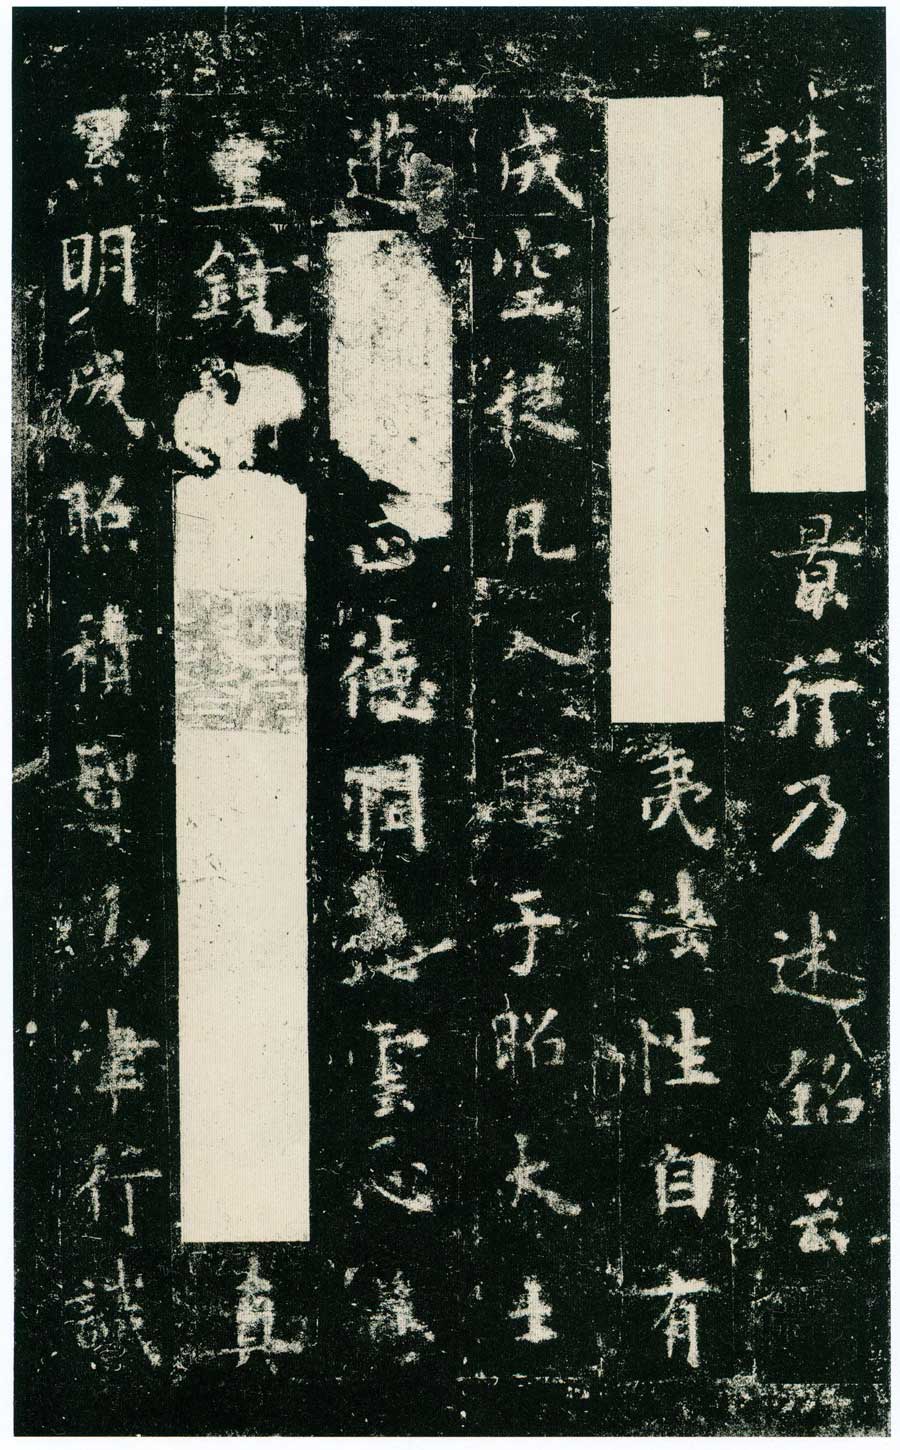 殊最行乃述銘云
夷法性自有
成空從凡入聖于昭大士
遊四德洞雲心
重鏡真
累明成昭積智為津行識